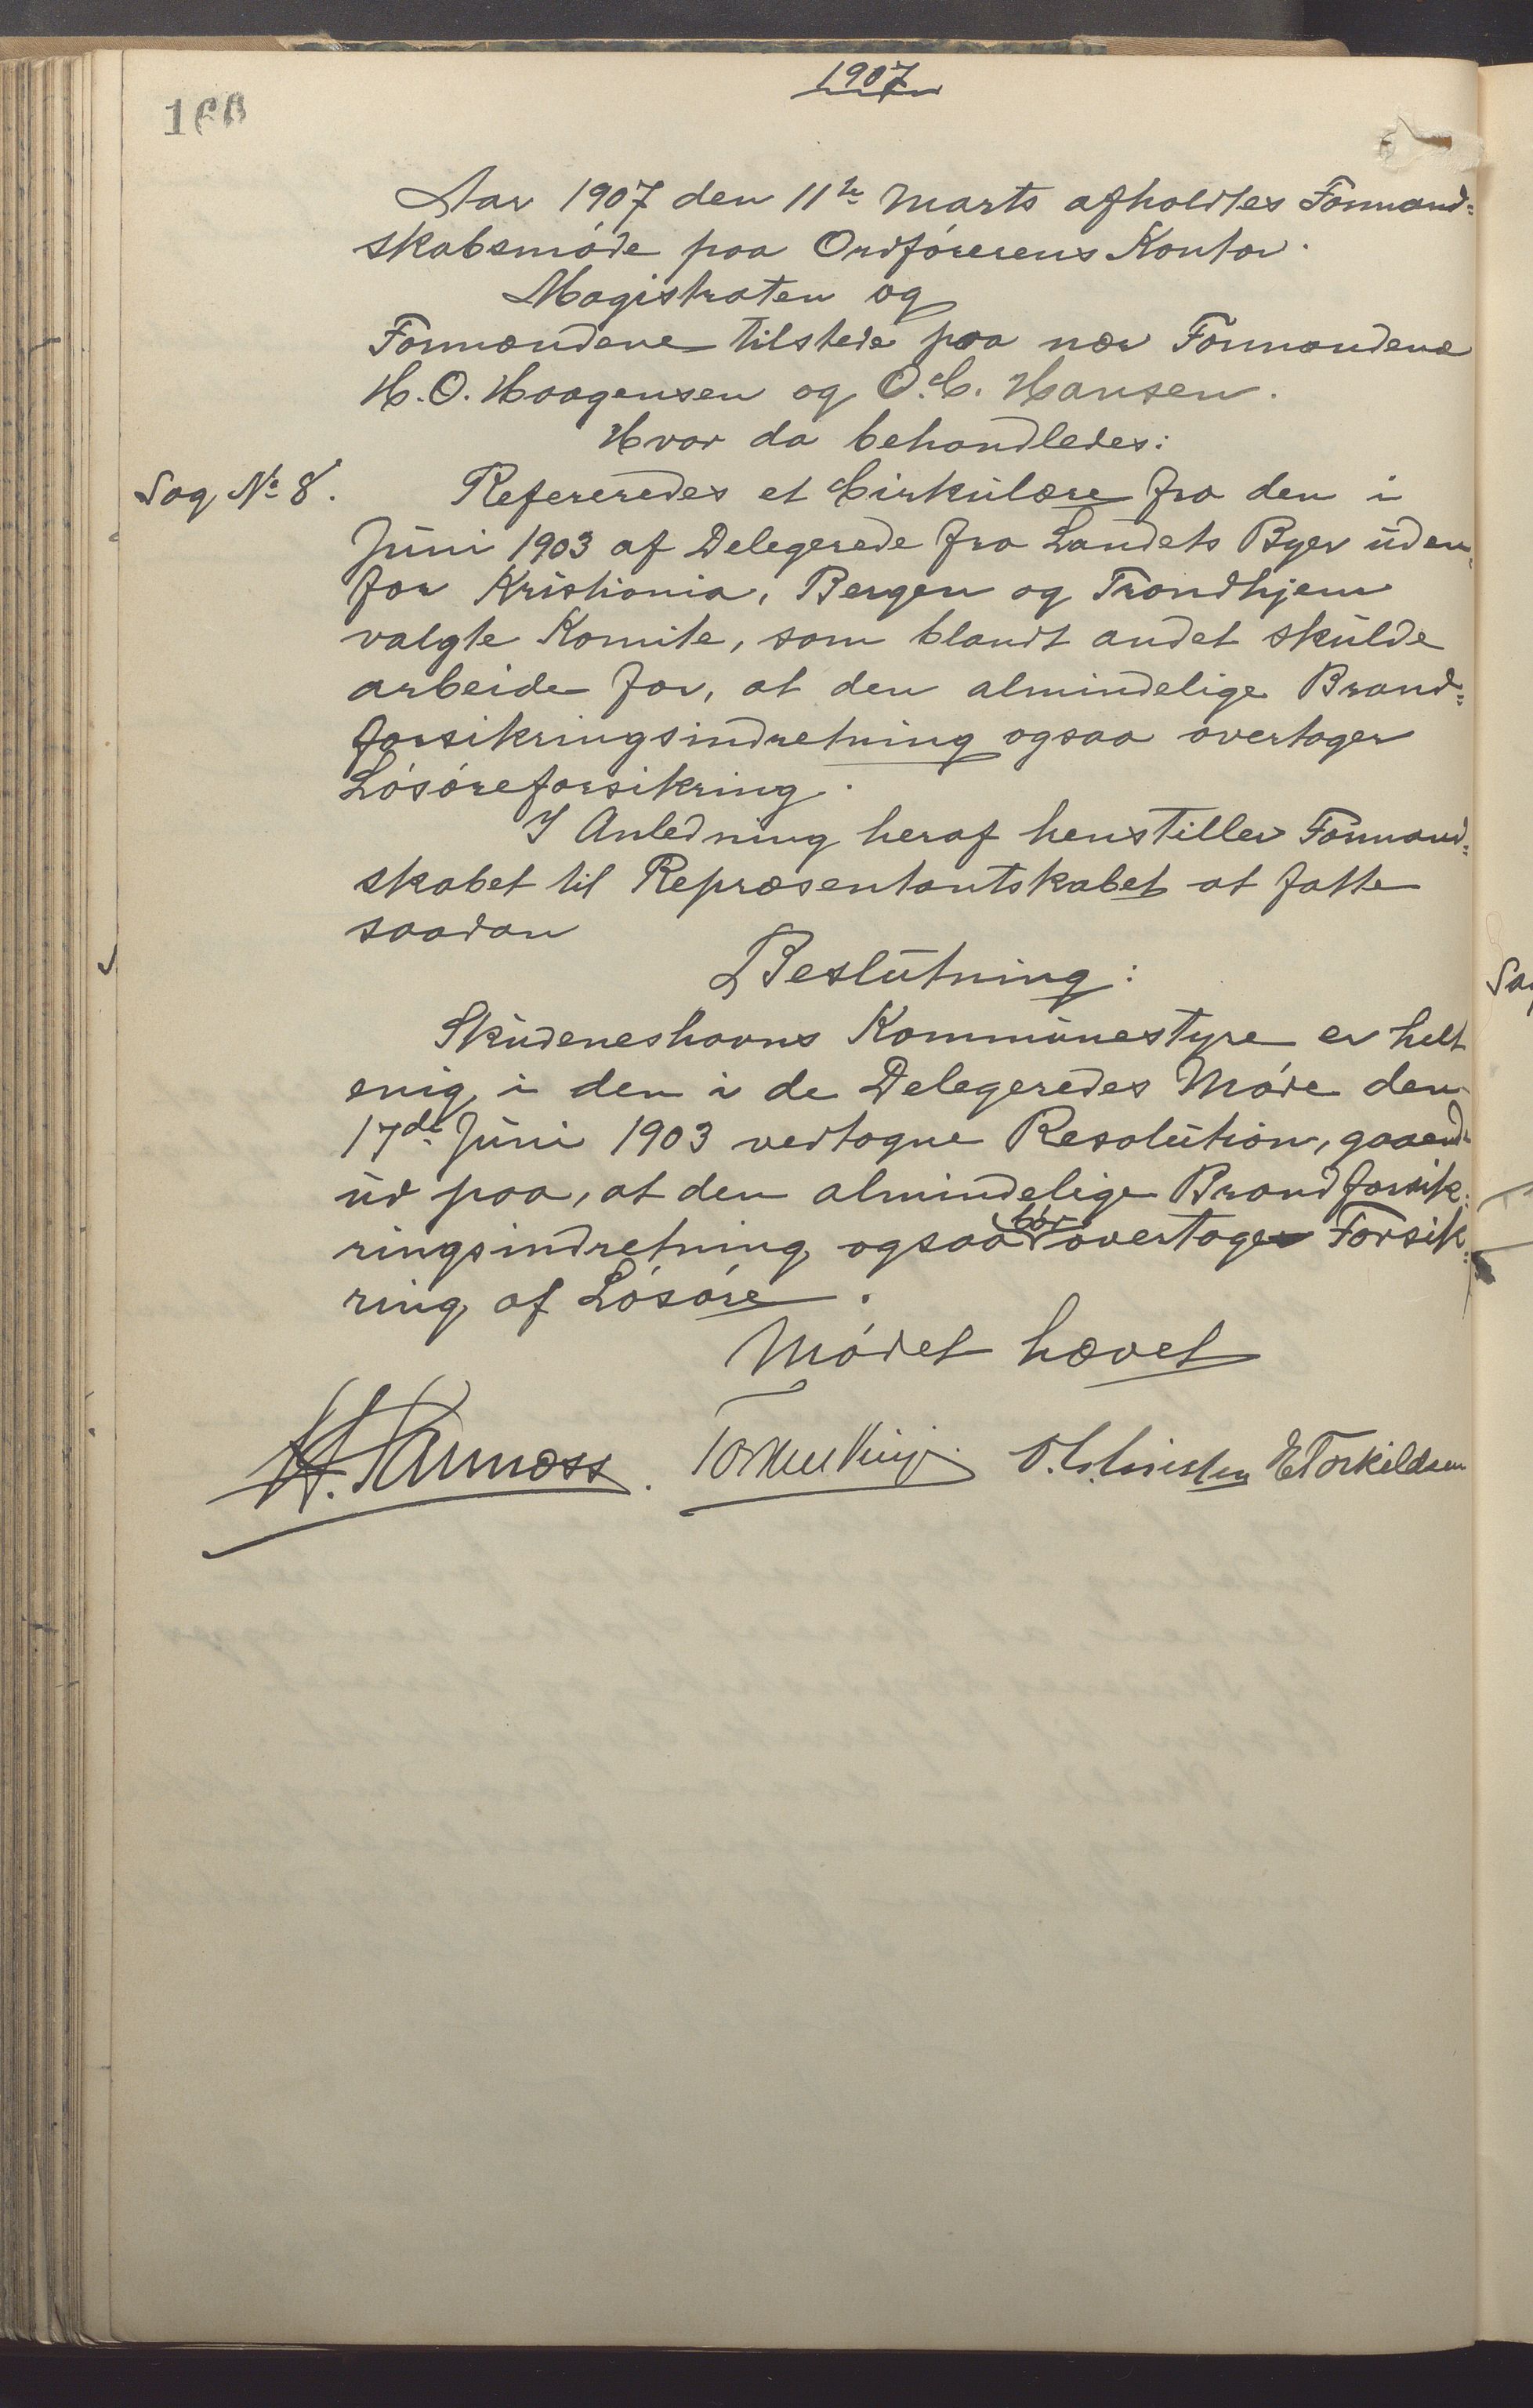 1907
166
Aar 1907 den 11te Marts afholdtes Formand=
skabsmöde paa Ordförerens Kontor.
Magistraten og
Formændene tilstede paa nær Formændene
H. O. Haagensen og O. C. Hansen.
Hvor da behandledes:
Sag No 8. Refereredes et Cirkulære fra den i
Juni 1903 af Delegerede fra Landets Byer uden=
for Kristiania, Bergen og Trondhjem
valgte Komite, som blandt andet skulde
arbeide for, at den almindelige Brand=
forsikringsindretning ogsaa overtager
Lösöreforsikring.
I Anledning heraf henstiller Formand=
skabet til Repræsentantskabet at fatte
saadan
Beslutning:
Skudeneshavns Kommunestyre er helt
enig i den i de Delegeredes Möde den
17de Juni 1903 vedtagne Resolution, gaaende
ud paa, at den almindelige Brandforsik=
ringsindretning ogsaa bör overtage Forsik=
ring af Lösöre.
Mödet hævet
E Torkildsen
Sag